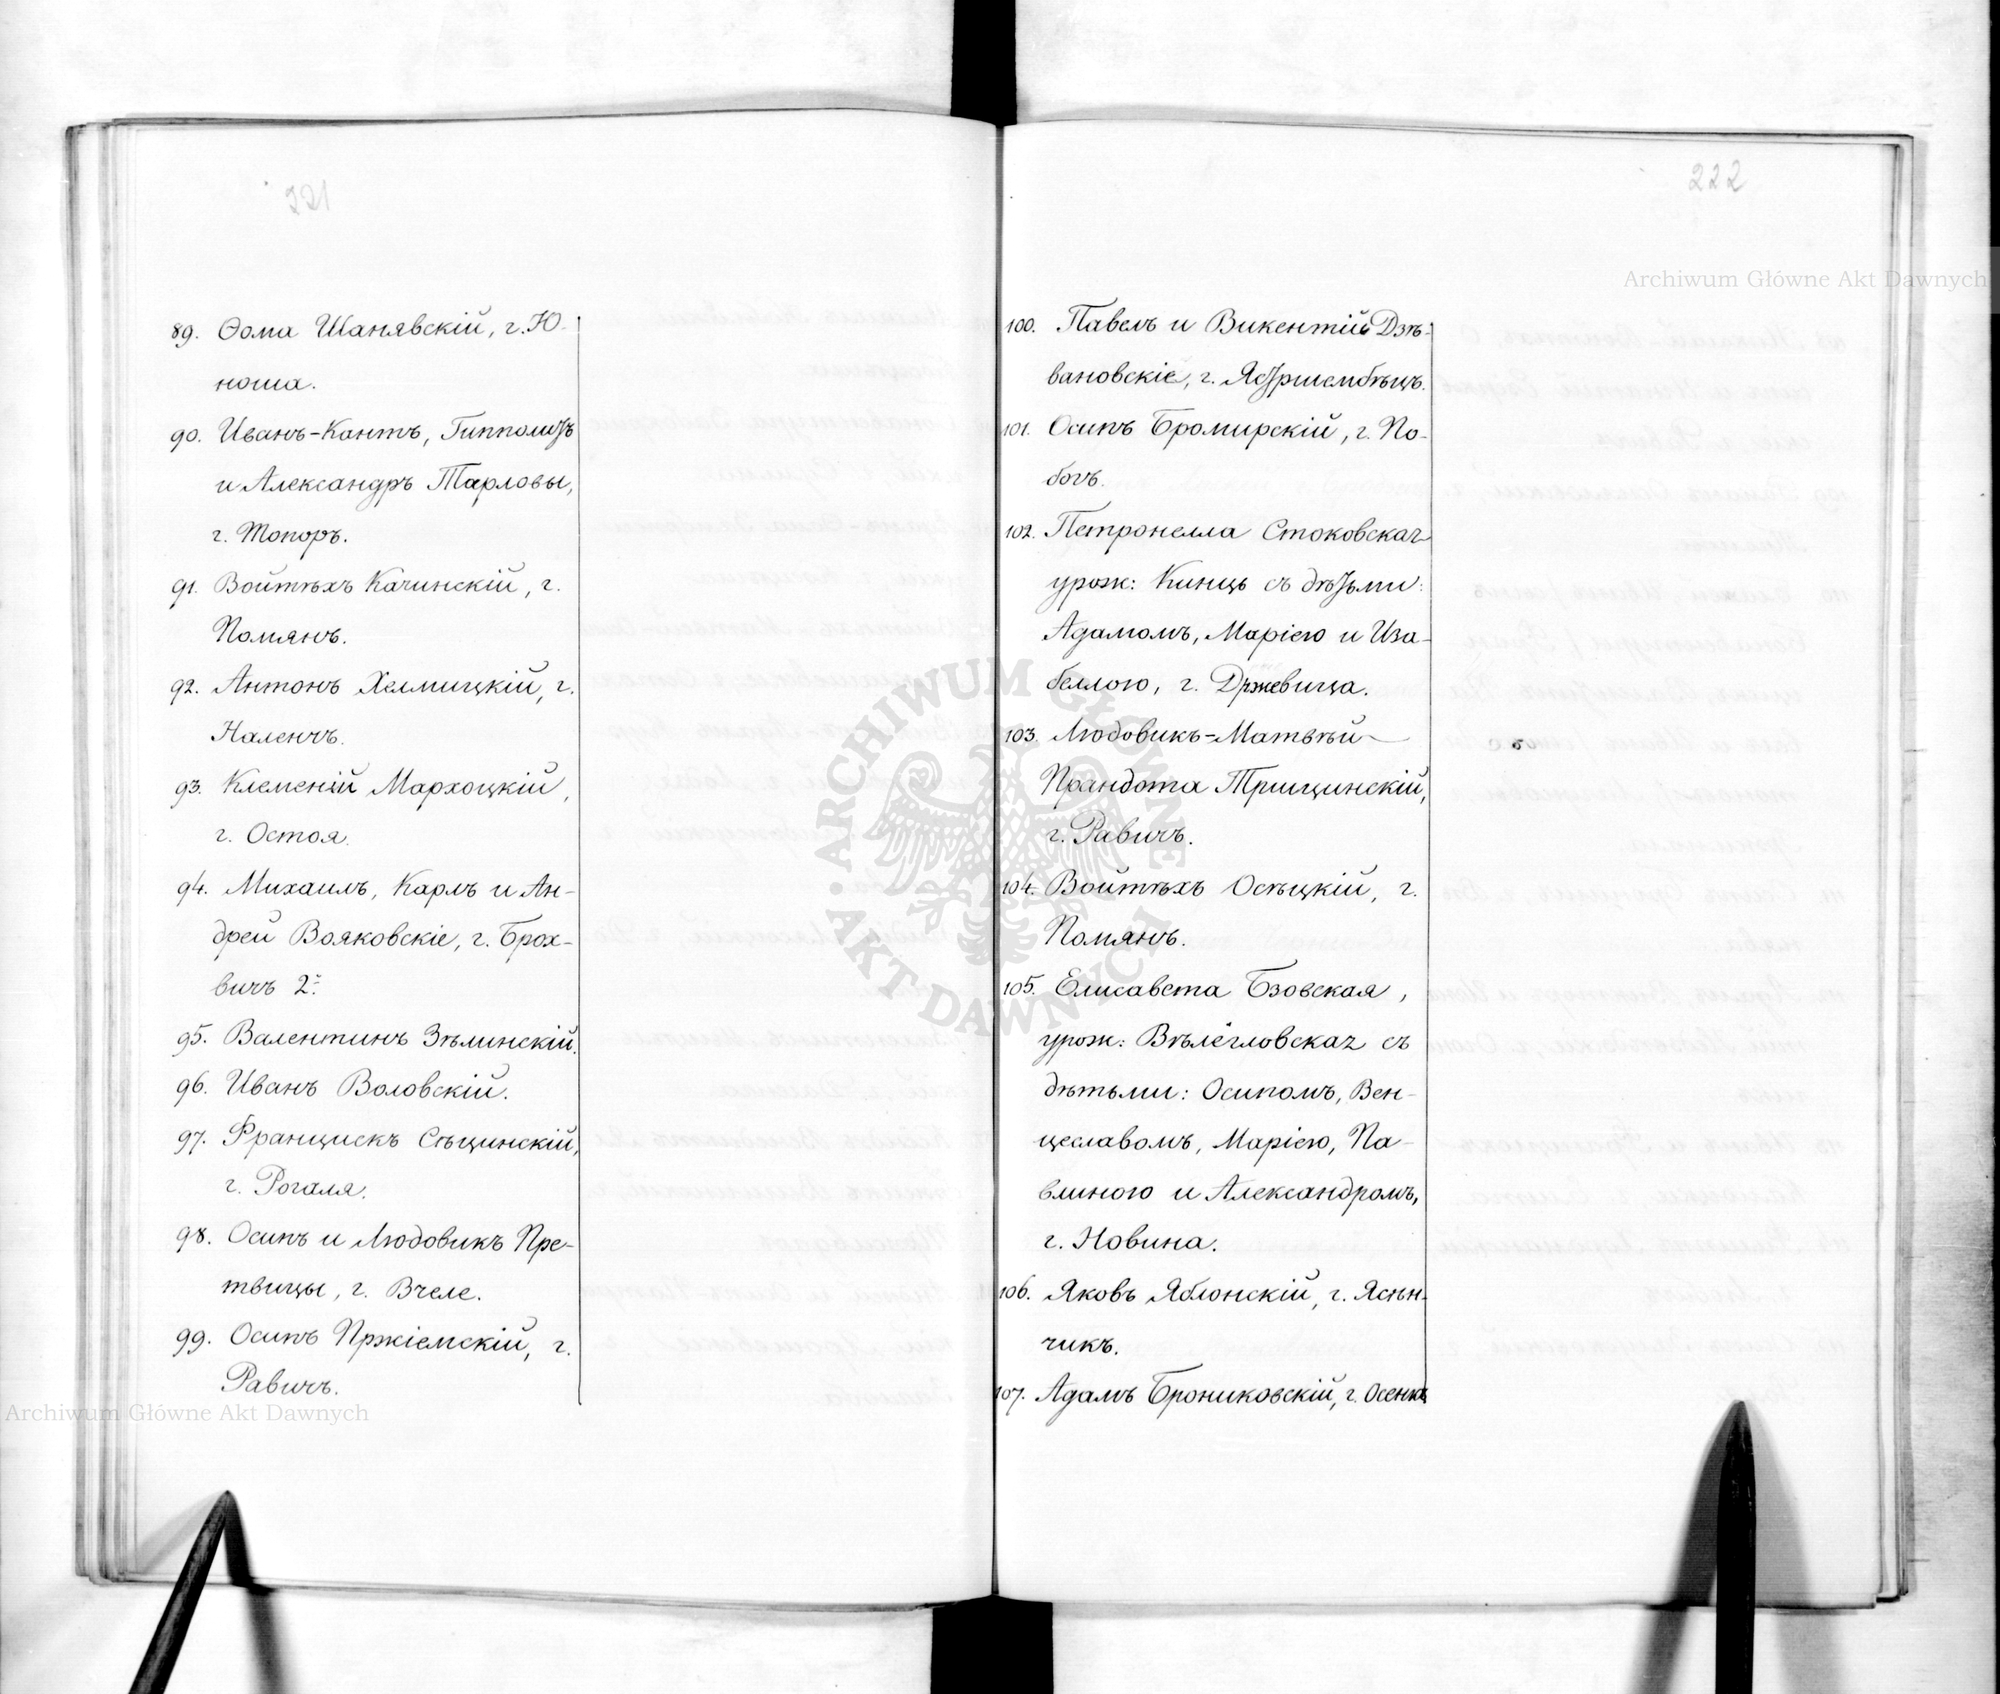 221
89. Ѳома Шанявскій, г. Ю-
ноша.
90. Иванъ-Кантъ, Гипполитъ
и Александръ Тарловы,
г. Топоръ.
91. Войтѣхъ Качинскій, г.
Помянъ.
92. Антонъ Хелмицкій, г.
Наленчъ.
93. Клементій Мархоцкій,
г. Остоя.
94. Михаилъ, Карлъ и Ан-
дрей Вояковскіе, г. Брох-
вичъ 2.
95. Валентинъ Зѣлинскій.
96. Иванъ Воловскій.
97. Францискъ Сѣцинскій,
г. Рогаля.
98. Осипъ и Людовикъ Пре-
твицы, г. Вчеле.
99. Осипъ Пржіемскій, г.
Равичъ.
Archiwum Główne Akt Dawnych
222
Archiwum Główne Akt Dawnych
100. Павелъ и Викентій Дзѣ-
вановскіе, г. Ястршембѣцъ.
101. Осипъ Бромирскій, г. По-
богъ.
102. Петронелла Стоковская
урож: Кинцъ съ дѣтьми:
Адамомъ, Маріею и Иза-
беллою, г. Држевица.
103. Людовикъ-Матвѣй-
Прандота Трищинскій,
г. Равичъ.
104. Войтѣхъ Осѣцкій, г.
Помянъ.
105. Елисавета Бзовская,
урож: Вѣлегловская съ
дѣтьми: Осипомъ, Вен-
цеславомъ, Маріею, Па-
влиною и Александромъ,
г. Новина.
106. Яковъ Яблонскій, г. Ясѣн-
чикъ.
107. Адамъ Брониковскій, г.
ARCHIWUM GŁÓWNE AKT DAWNYCH